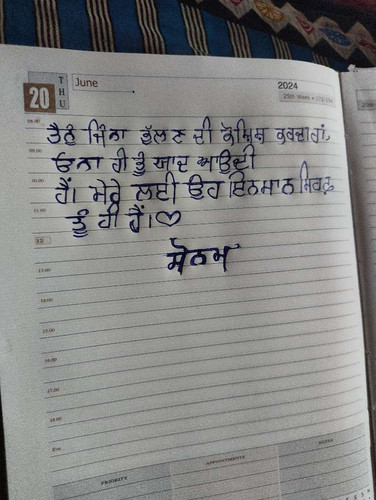 20
THU
June
2024
25th Week
09.00
ਤੈਨੂੰ ਜਿੰਨਾ ਭੁੱਲਣ ਦੀ ਕੋਸ਼ਿਸ਼ ਕਰਦਾਂ ਹਾਂ,
ਓਨਾ ਹੀ ਤੂੰ ਯਾਦ ਆਉਂਦੀ
10.00
ਹੈਂ। ਮੇਰੇ ਲਈ ਉਹ ਇਨਸਾਨ ਸਿਰਫ਼
11.00
ਤੂੰ ਹੀ ਹੈਂ।♡
12
ਸੋਨਮ
13.00
14.00
15.00
16.00
17.00
18.00
Eve
PRIORITY
APPOINTMENTS
NOTES